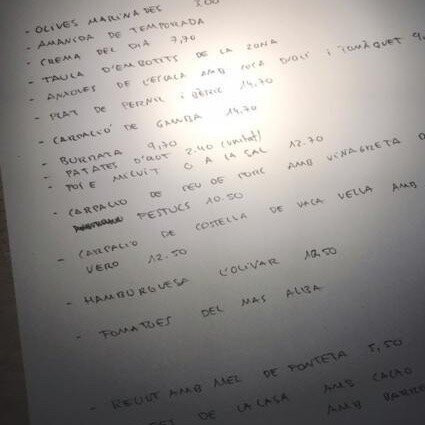 - OLIVES MARINADES 3,00
- AMANIDA DE TEMPORADA
- CREMA DEL DIA 7,70
- TAULA D'EMBOTITS DE LA ZONA
- ANXOVES DE L'ESCALA AMB COCA D'OLI I TOMÀQUET 9
- PLAT DE PERNIL IBÈRIC 14.70
- CARPACCIO DE GAMBA 14.70
- BURRATA 9,70
- PATATES D'OLOT 2.40 (unitat)
- O A LA SAL 12.70
- CARPACCIO DE PEU DE PORC AMB VINAGRETA D
PESTUCS 10.50
- CARPACCIO DE COSTELLA DE VACA VELLA AMB
VERO 12.50
- HAMBURGUESA L'OLIVAR
- FOMATGES DEL MAS ALBA
- RECUIT AMB MEL DE FONTETA 5,50
DE LA CASA AMB CACAO
AMB BARRE